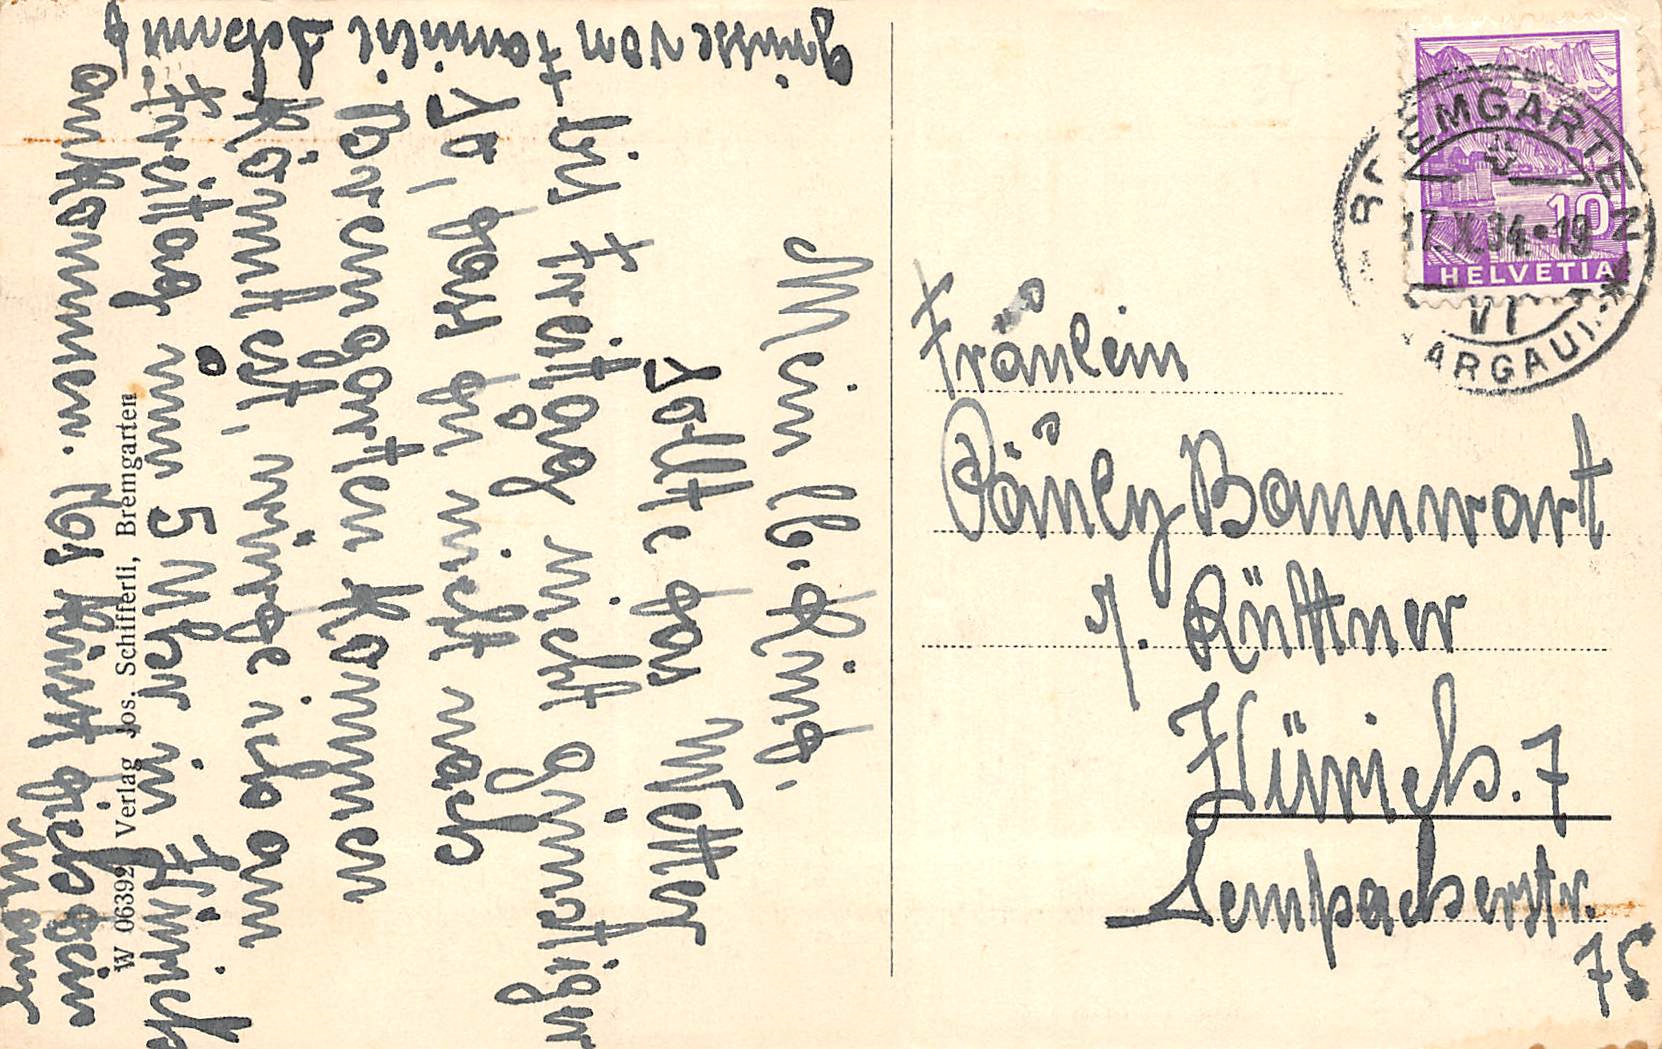 Mein lb. Kind,
Sollte das Wetter
bis Freitag nicht günstiger
so, dass du nicht nach
Bremgarten kommen
könntest, würde ich am
Freitag um 5 Uhr in Zürich
ankommen. küsst dich
Mama
Grüsse von Familie
W 06392 Verlag Jos. Schifferli, Bremgarten
Fräulein
Päuly Bannwart
Rüttner
Zürich. 7
Sempacherstr.
75
BREMGARTEN
17.X.34-19
VI
(AARGAU)
10
HELVETIA